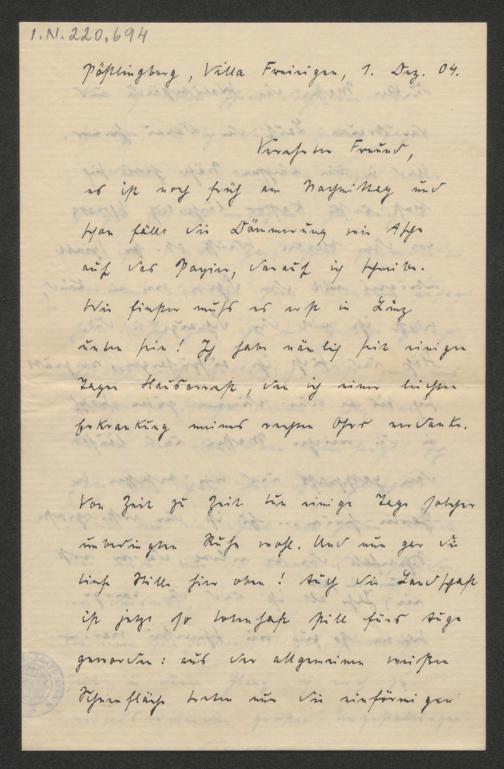 I.N.220.694
Pöstlingberg, Villa Freisigen, 1. Dez. 04.
Verehrter Freund,
es ist noch früh am Nachmittag und
schon fällt die Dämmerung wie Asche
auf das Papier, darauf ich schreibe.
Wie finster muſs es erst in Linz
unten sein! Ich habe nämlich seit einigen
Tagen Hausarrest, den ich einer leichten
Erkrankung meines rechten Ohrs verdanke.
Von Zeit zu Zeit tun einige Tage solcher
unbedingten Ruhe wohl. Und nun gar die
tiefe Stille hier oben! Auch die Landschaft
ist jetzt so totenhaft still fürs Auge
geworden: aus der allgemeinen weißen
Schneefläche treten nur die einförmigen